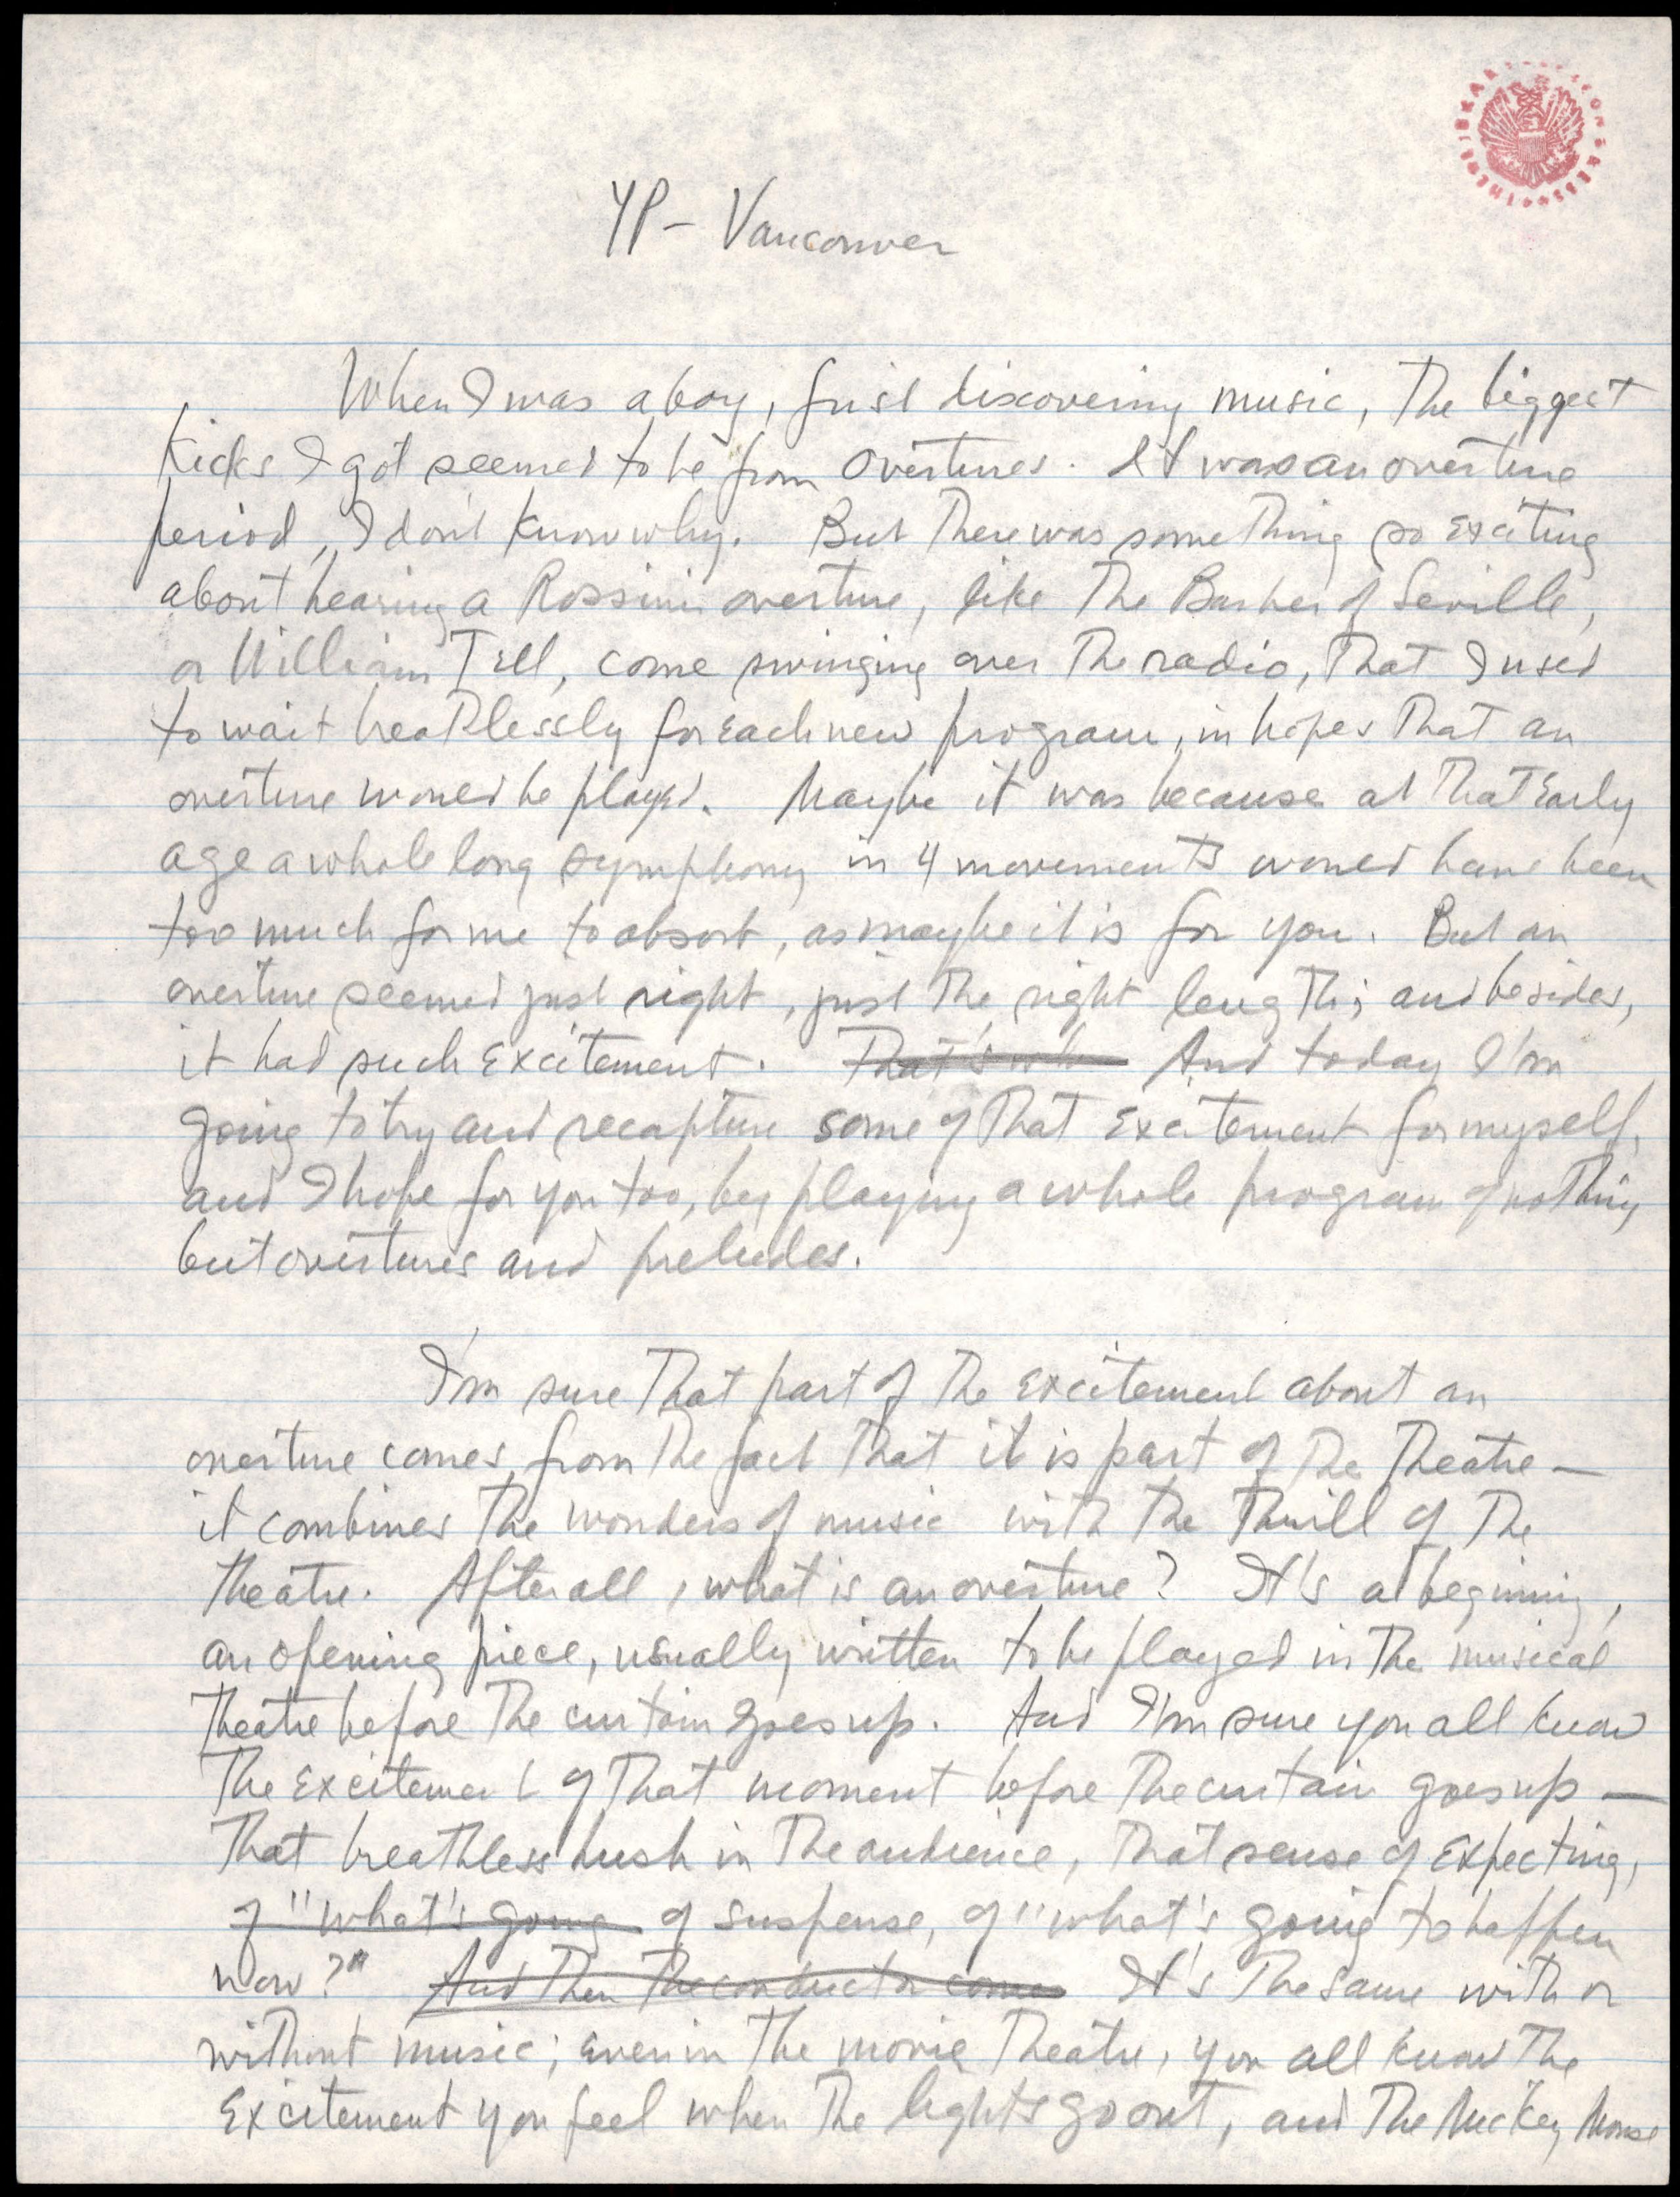 YP – Vancouver
When I was a boy, first discovering music, the biggest
kicks I got seemed to be from overtures. It was an overture
period, I don't know why. But there was something so exciting
about hearing a Rossini overture, like The Barber of Seville,
or William Tell, come swinging over the radio, that I used
to wait breathlessly for each new program, in hopes that an
overture would be played. Maybe it was because at that early
age a whole long symphony in 4 movements would have been
too much for me to absorb, as maybe it is for you. But an
overture seemed just right, just the right length; and besides,
it had such excitement. That's wh And today I'm
going to try and recapture some of that excitement for myself,
and I hope for you too, by playing a whole program of nothing
but overtures and preludes.
I'm sure that part of the excitement about an
overture comes from the fact that it is part of the theatre —
it combines the wonders of music with the thrill of the
theatre. After all, what is an overture? It's a beginning,
an opening piece, usually written to be played in the musical
theatre before the curtain goes up. And I'm sure you all know
the excitement of that moment before the curtain goes up —
that breathless hush in the audience, that sense of expecting,
of "what's going of suspense, of "what's going to happen
now?" And then the conductor comes It's the same with or
without music; even in the movie theatre, you all know the
excitement you feel when the lights go out, and the Mickey Mouse